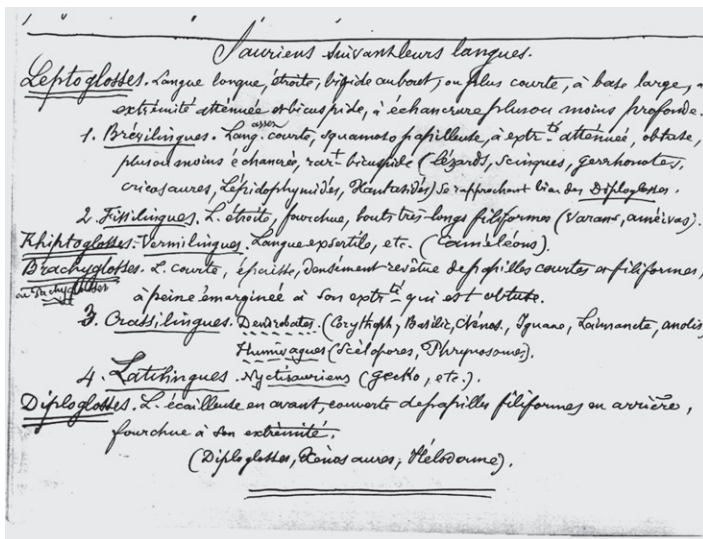 Sauriens suivant leurs langues.
Leptoglosses. Langue longue, étroite, bifide au bout, ou plus courte, à base large, à
extrémité atténuée et bicuspide, à échancrure plus ou moins profonde.
1. Brévilingues. Lang. assez courte, squamoso papilleuse, à extr.té atténuée, obtuse,
plus ou moins échancrée, rar.t bicuspide (Lézards, Scinques, gerrhonotes,
cricosaures, Lépidophymidés, Xantusidés) se rapprochent bien des Diploglosses.
2. Fissilingues. L. étroite, fourchue, bouts très-longs filiformes (Varans, améivas).
Rhiptoglosses = Vermilingues. Langue exsertile, etc. (Caméléons).
Brachyglosses. L. courte, épaisse, densément revêtue de papilles courtes et filiformes,
ou Pachyglosses
à peine émarginée à son extr.té qui est obtuse.
3. Crassilingues. Dendrobates. (Corythoph, Basilic, Cténos., Iguane, Laimancte, anolis)
Humivagues (Scélopores, Phrynosomes).
4. Latilingues. Nyctisauriens (gecko, etc.).
Diploglosses. L. écailleuse en avant, couverte de papilles filiformes en arrière,
fourchue à son extrémité.
(Diploglosses, Xénosaures, Hélodorme).